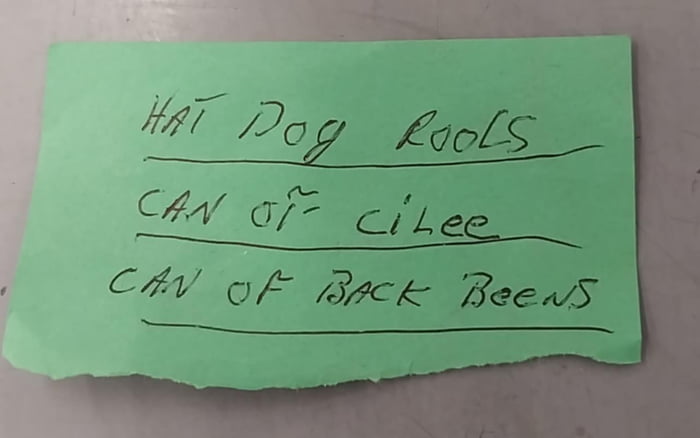 HAT DOg ROOLS
CAN OF CiLee
CAN OF BACK BeeNS